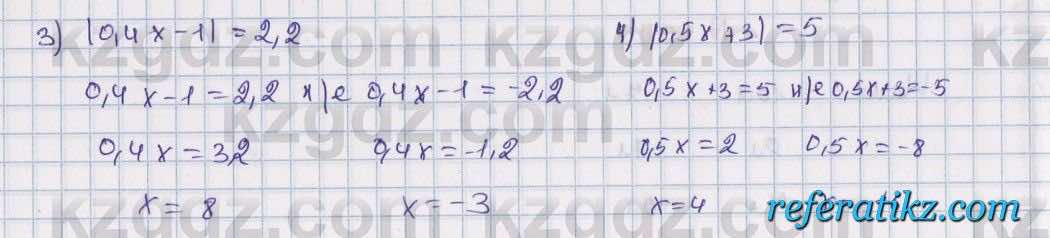 3) |0,4x-1| = 2,2
0,4x-1 = 2,2 н/е 0,4x-1 = -2,2
0,4x = 3,2 0,4x = -1,2
x = 8 x = -3
4) |0,5x+3| = 5
0,5x+3 = 5 н/е 0,5x+3 = -5
0,5x = 2 0,5x = -8
x = 4
referatikz.com
kzgdz.com